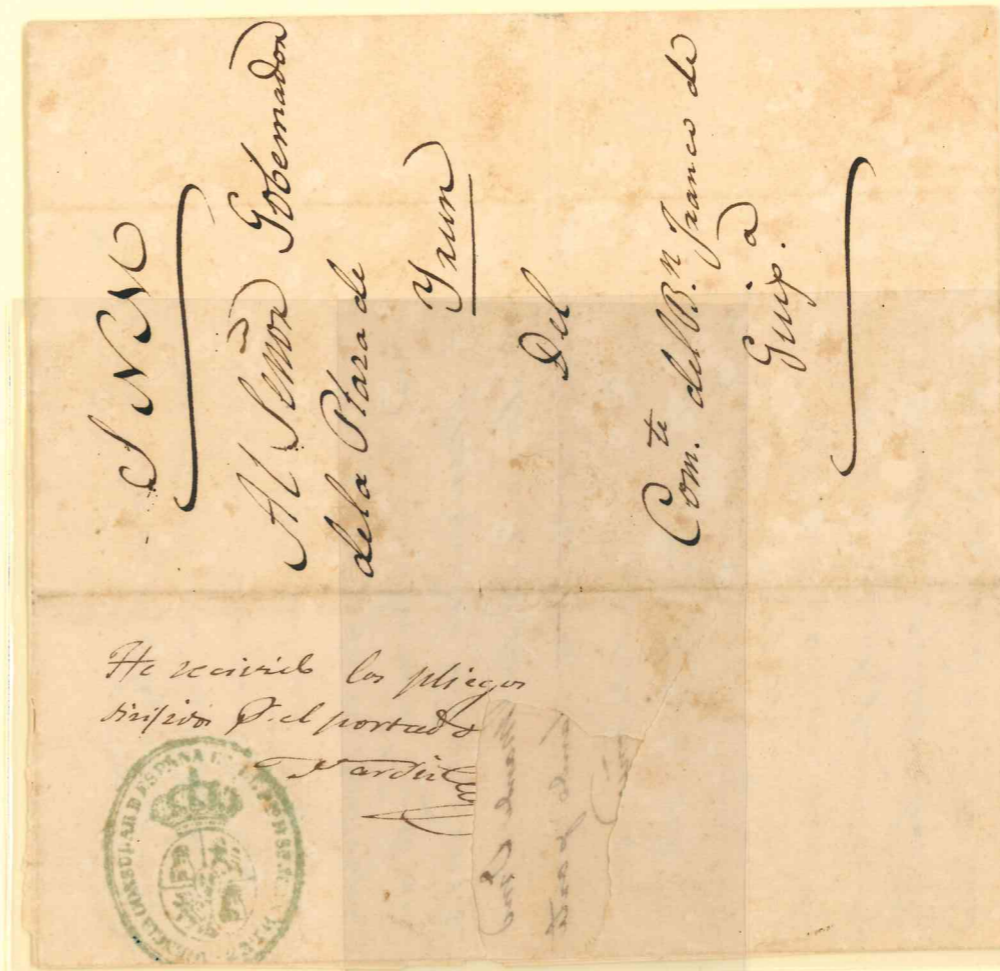 S N N
Al Señor Gobernador
de la Plaza de
Yrun
Del
Com.te del B.n franco de
Guip.a
He recivido los pliegos
dirijidos P. el portador
AGENCIA CONSULAR DE ESPAÑA